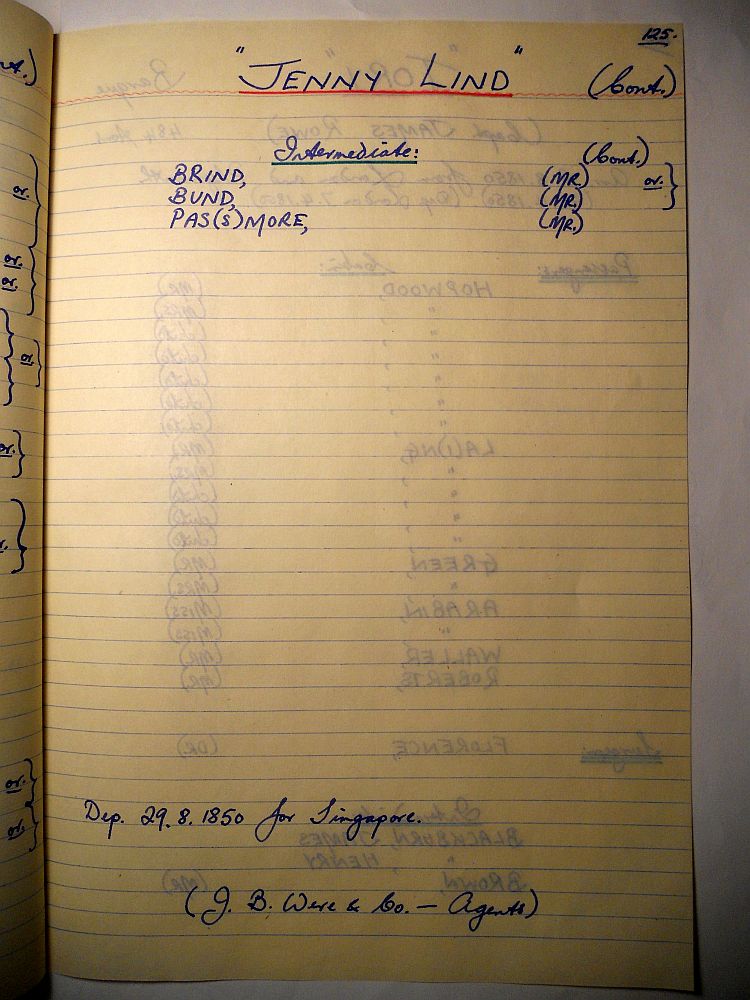 125.
"JENNY LIND" (Cont.)
Intermediate: (Cont.)
BRIND, (MR.) or.
BUND, (MR.)
PAS(S)MORE, (MR.)
Dep. 29. 8. 1850 for Singapore.
(J. B. Were & Co. — Agents)
or.
or.
or.
or.
or.
or.
or.